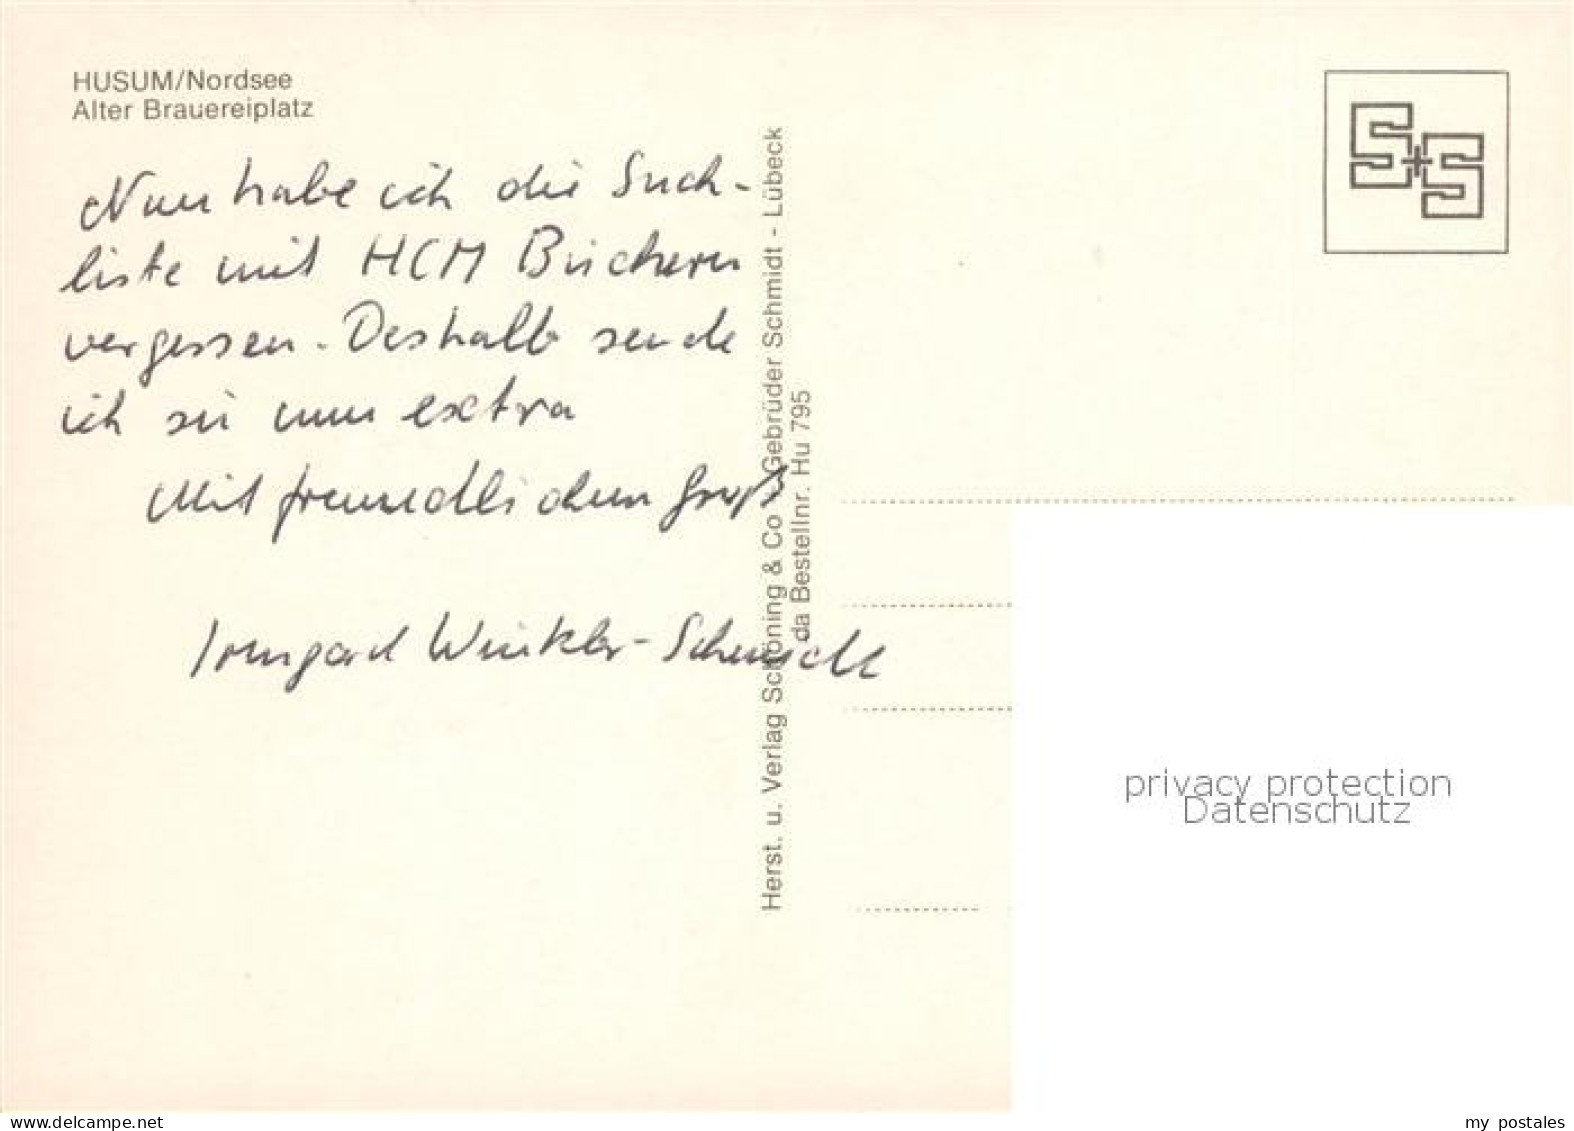 HUSUM/Nordsee
Alter Brauereiplatz
Nun habe ich die Such-
liste mit HCM Büchern
vergessen. Deshalb sende
ich sie nun extra
Mit freundlichem Gruß
Irmgard Winkler-Schmidt
Herst. u. Verlag Schöning & Co + Gebrüder Schmidt - Lübeck
da Bestellnr. Hu 795
S+S
privacy protection
Datenschutz
www.delcampe.net
my_postales